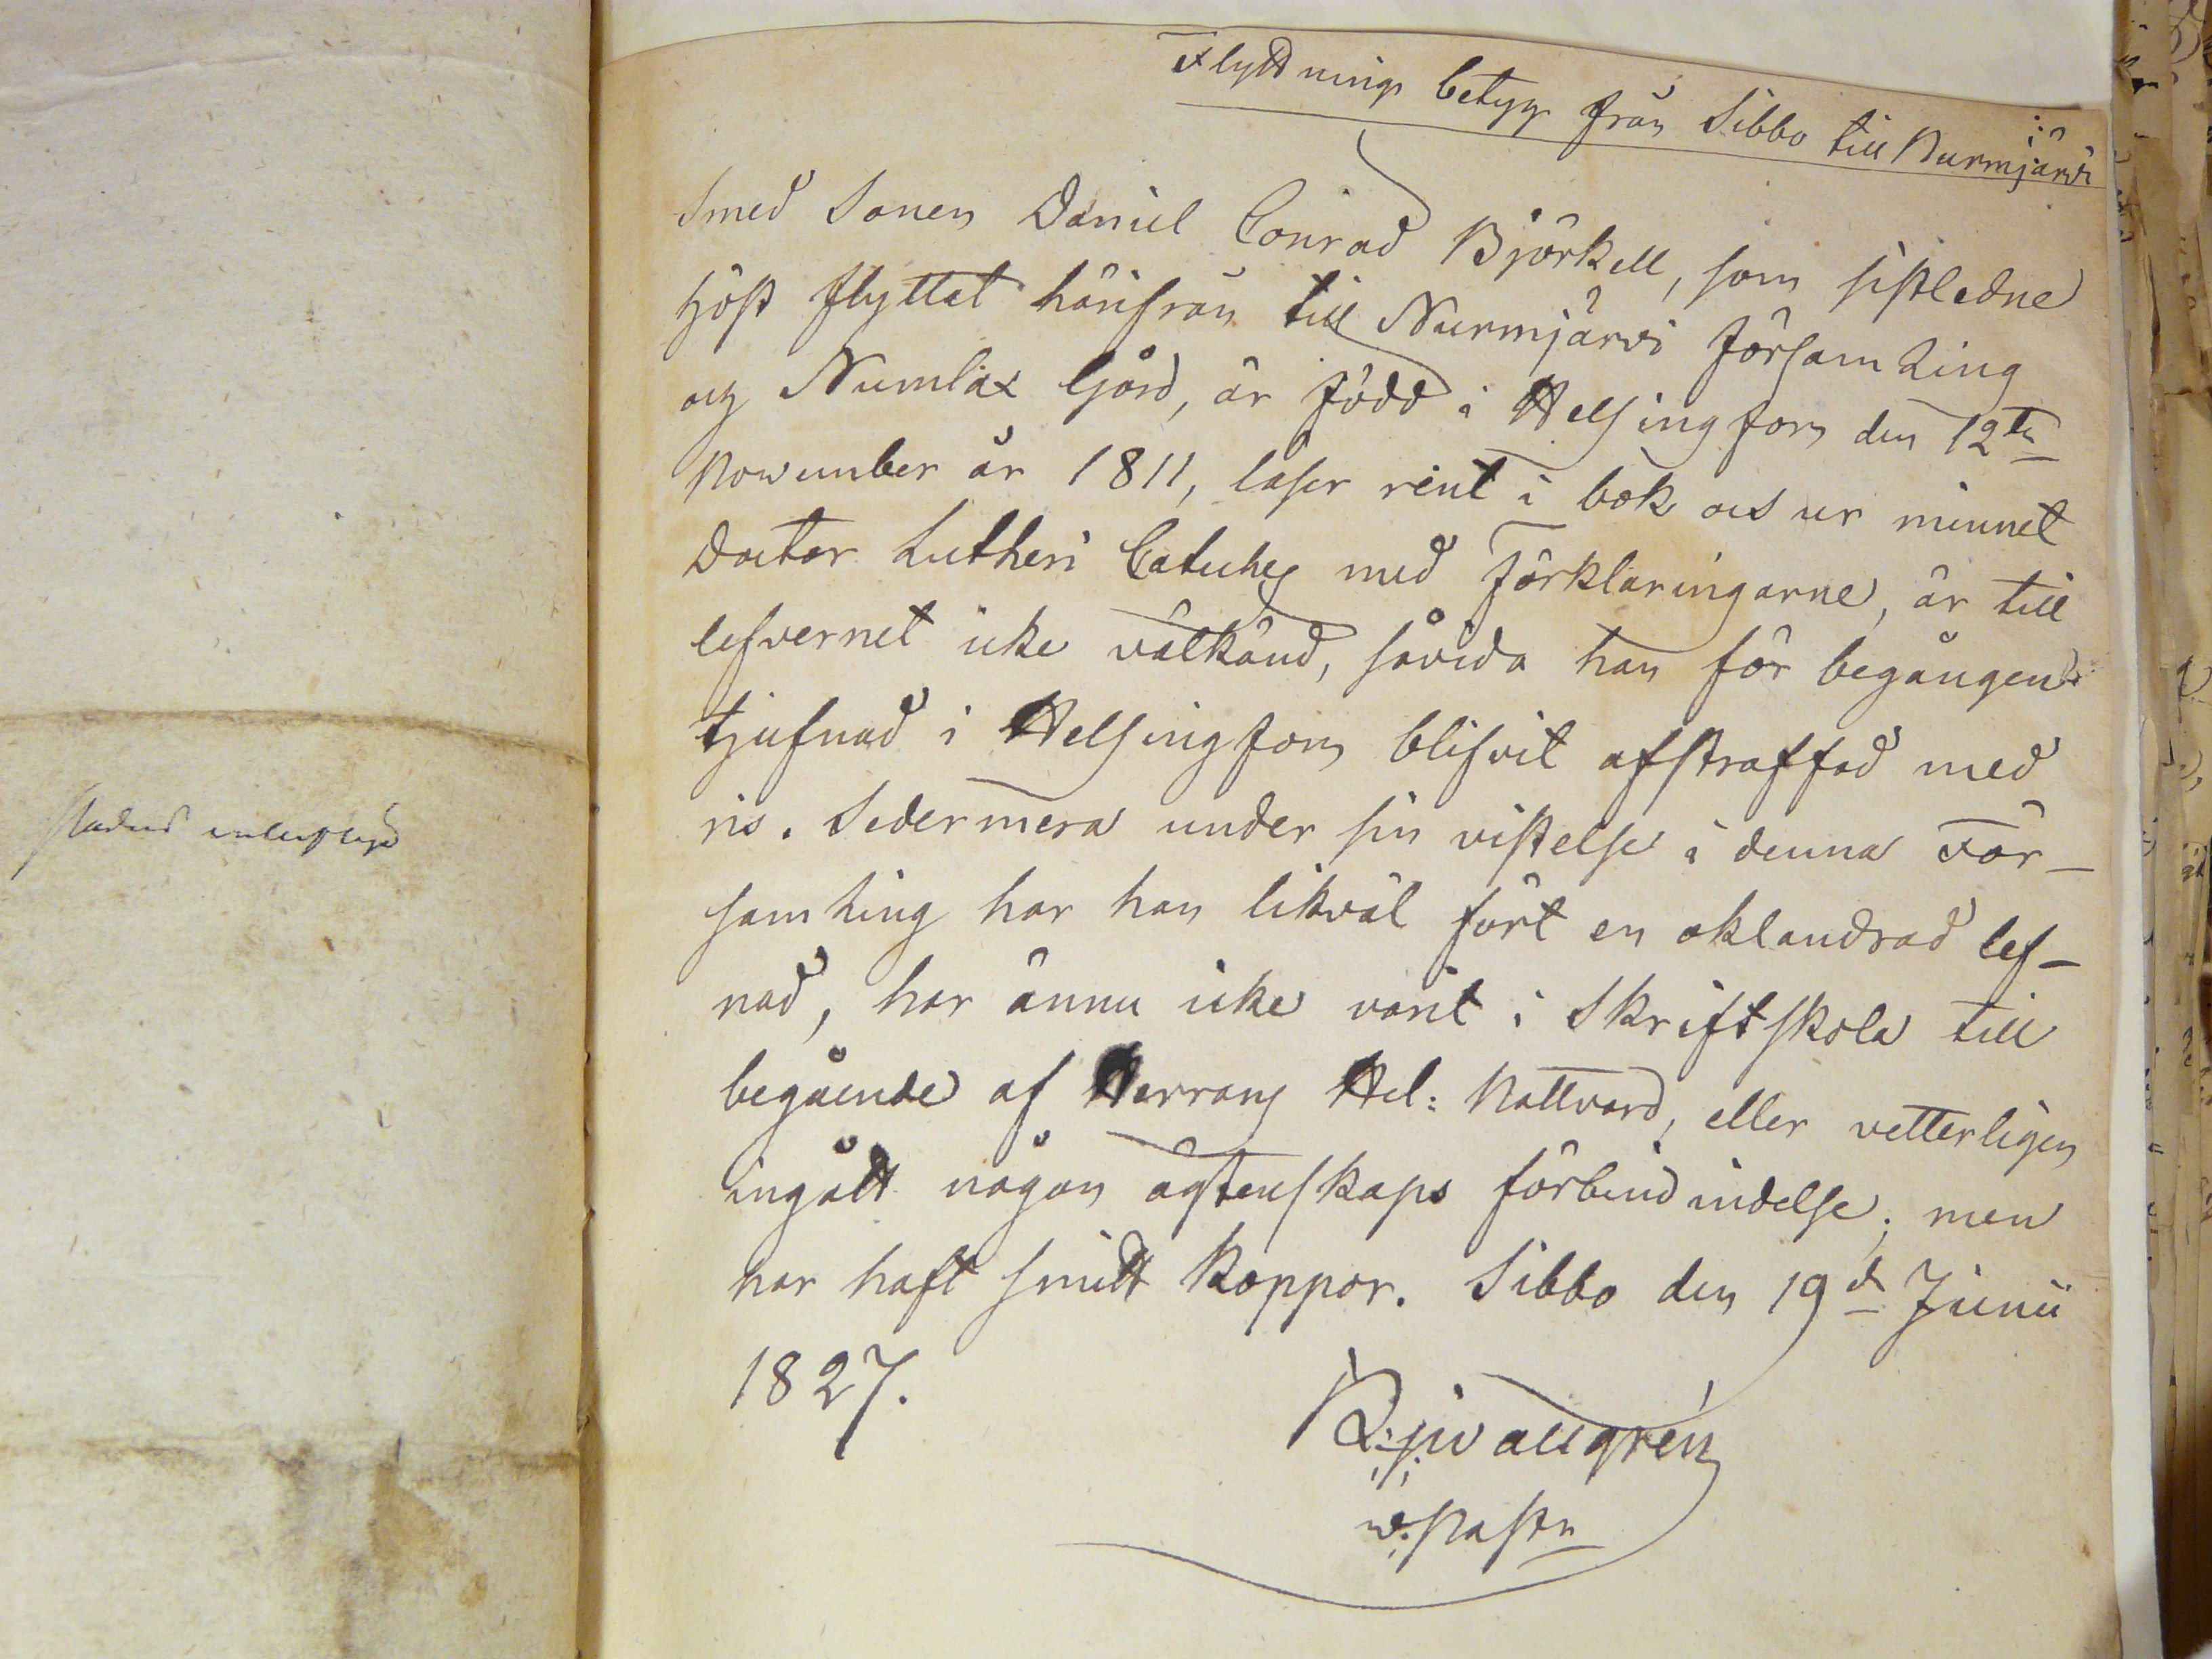 Flyttnings betyg från Sibbo till Nurmjärvi
Smed Sonen Daniel Conrad Björkell, som sistledne
höst flyttat härifrån till Nurmjärvi Församling
och Numlax Gård, är född i Helsingfors den 12te
November år 1811, läser rent i bok och ur minnet
Doctor Lutheri Cateches med Förklaringarne, är till
lefvernet icke välkänd, såvida han för begången
tjufnad i Helsingfors blifvit afstraffad med
ris. Sedermera under sin vistelse i denna För-
samling har han likväl fört en oklandrad lef-
nad, har ännu icke varit i Skriftskola till
begående af Herrans Hel: Nattvard, eller vetterligen
ingått någon ägtenskaps förbindindelse; men
har haft smitt koppor. Sibbo den 19de Junii
1827.
v: Pastr